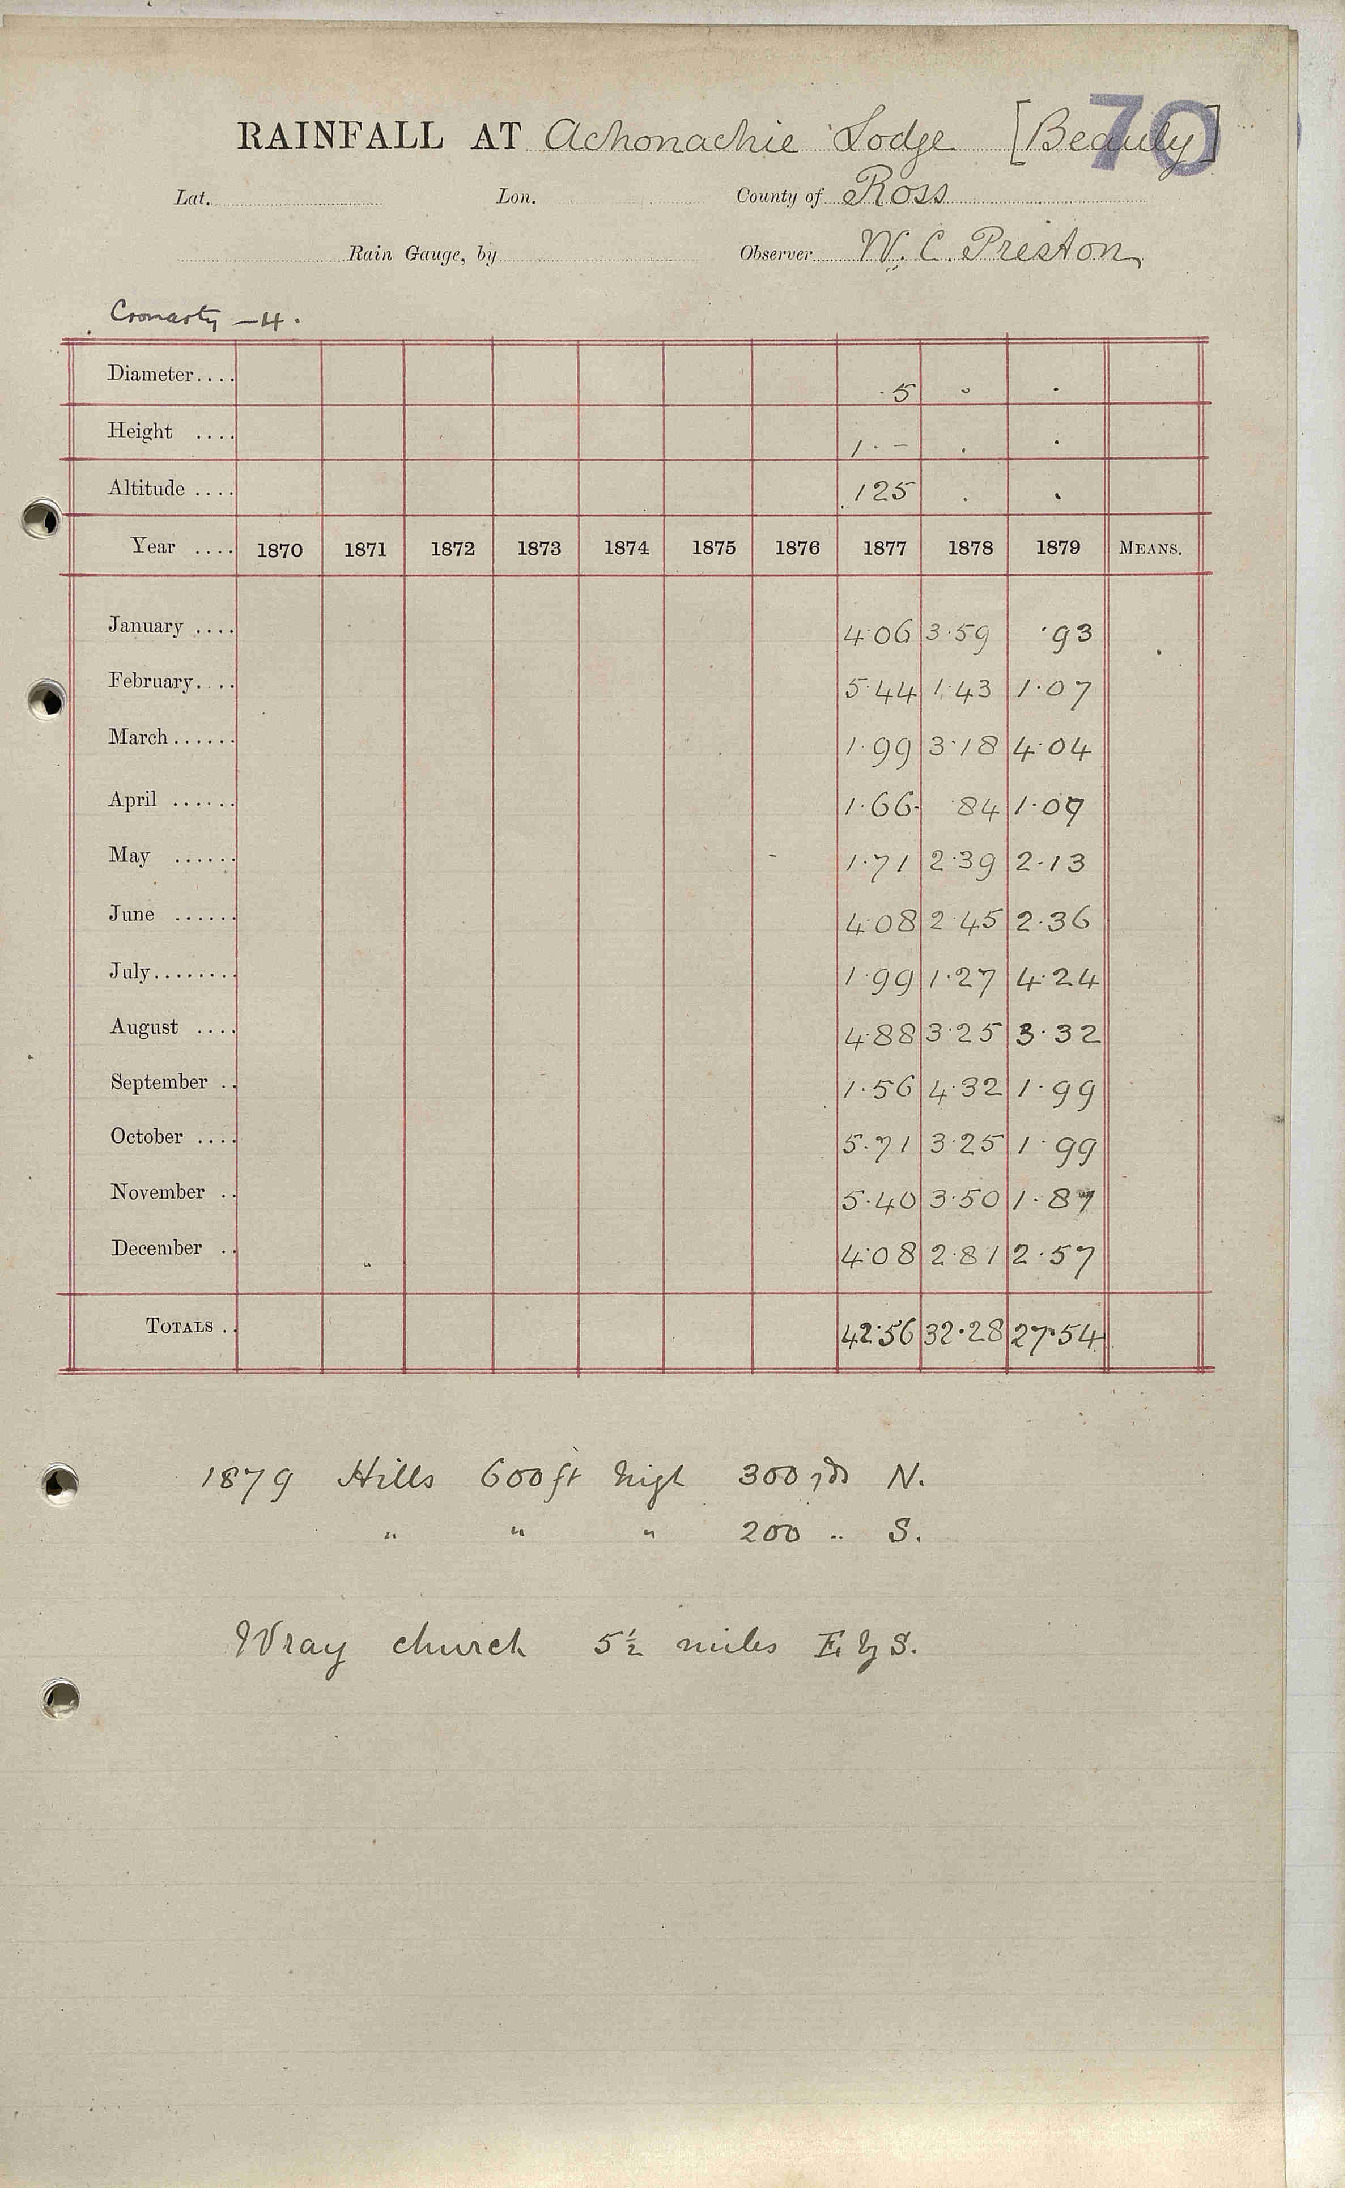 70
RAINFALL AT Achonachie Lodge [Beauly]
Lat. Lon. County of Ross
Rain Gauge, by Observer W. C. Preston
Cromarty – 4.
Diameter.... 5 " "
Height .... 1 · – . .
Altitude .... 125 . .
Year .... 1870 1871 1872 1873 1874 1875 1876 1877 1878 1879 MEANS.
January .... 4·06 3·59 ·93
February.... 5·44 1·43 1·07
March...... 1·99 3·18 4·04
April ...... 1·66 ·84 1·09
May ...... 1·71 2·39 2·13
June ...... 4·08 2·45 2·36
July........ 1·99 1·27 4·24
August .... 4·88 3·25 3·32
September .. 1·56 4·32 1·99
October .... 5·71 3·25 1·99
November .. 5·40 3·50 1·87
December .. 4·08 2·81 2·57
TOTALS .. 42·56 32·28 27·54
1879 Hills 600 ft high 300 yds N.
" " " 200 " S.
Wray church 5½ miles E by S.